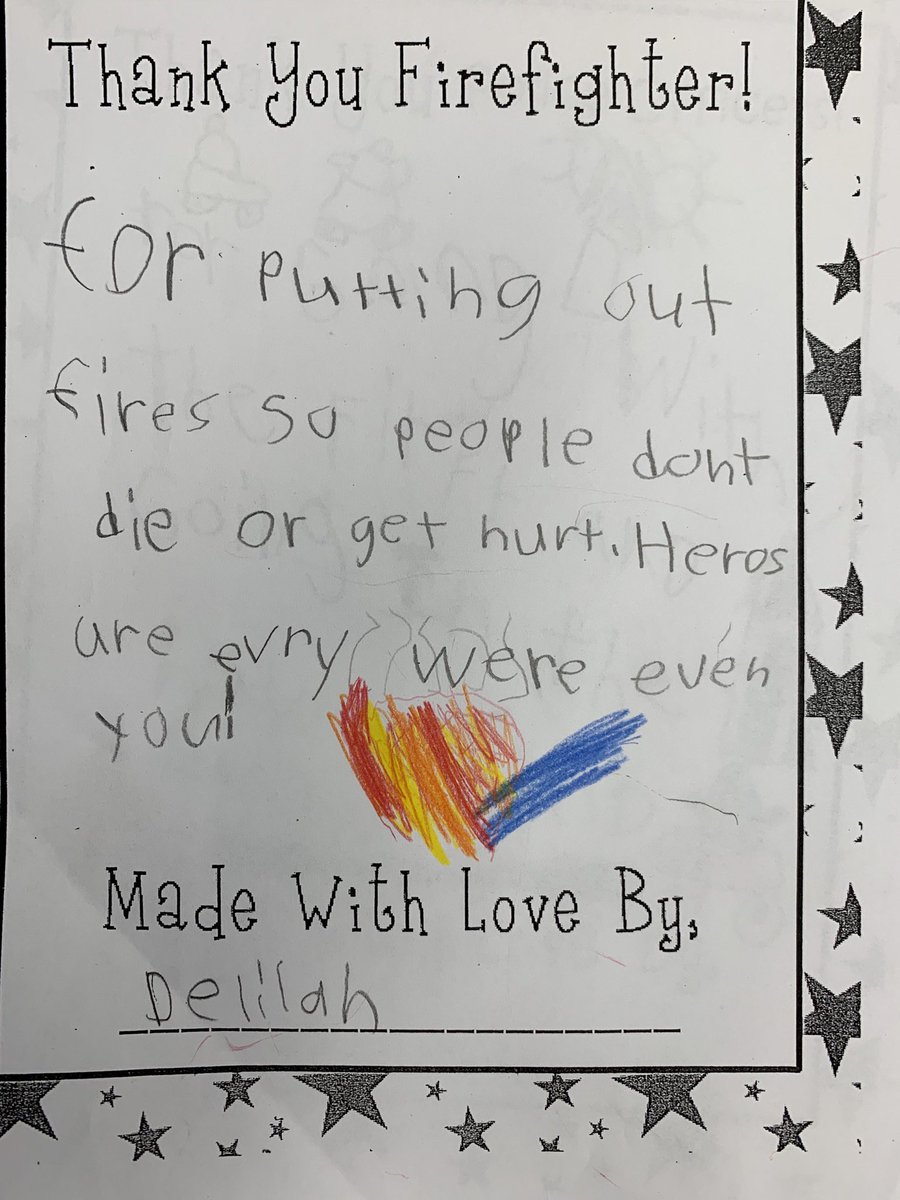 Thank You Firefighter!
for putting out
fires so people dont
die or get hurt. Heros
are evry were even
you!
Made With Love By,
Delilah